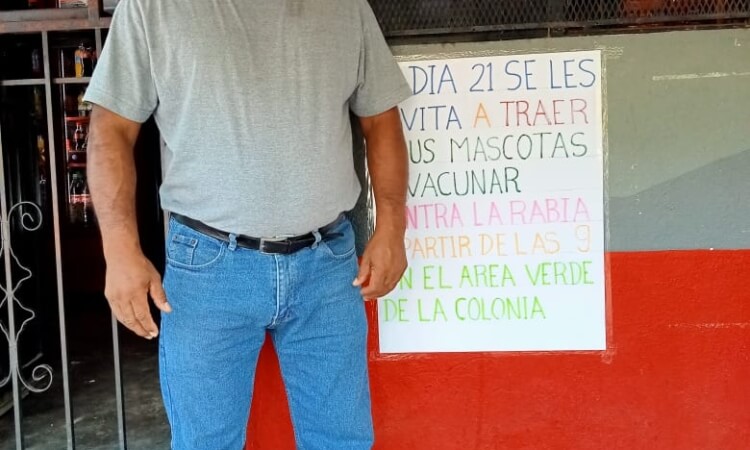 DIA 21 SE LES
VITA A TRAER
US MASCOTAS
VACUNAR
NTRA LA RABIA
PARTIR DE LAS 9
N EL AREA VERDE
DE LA COLONIA